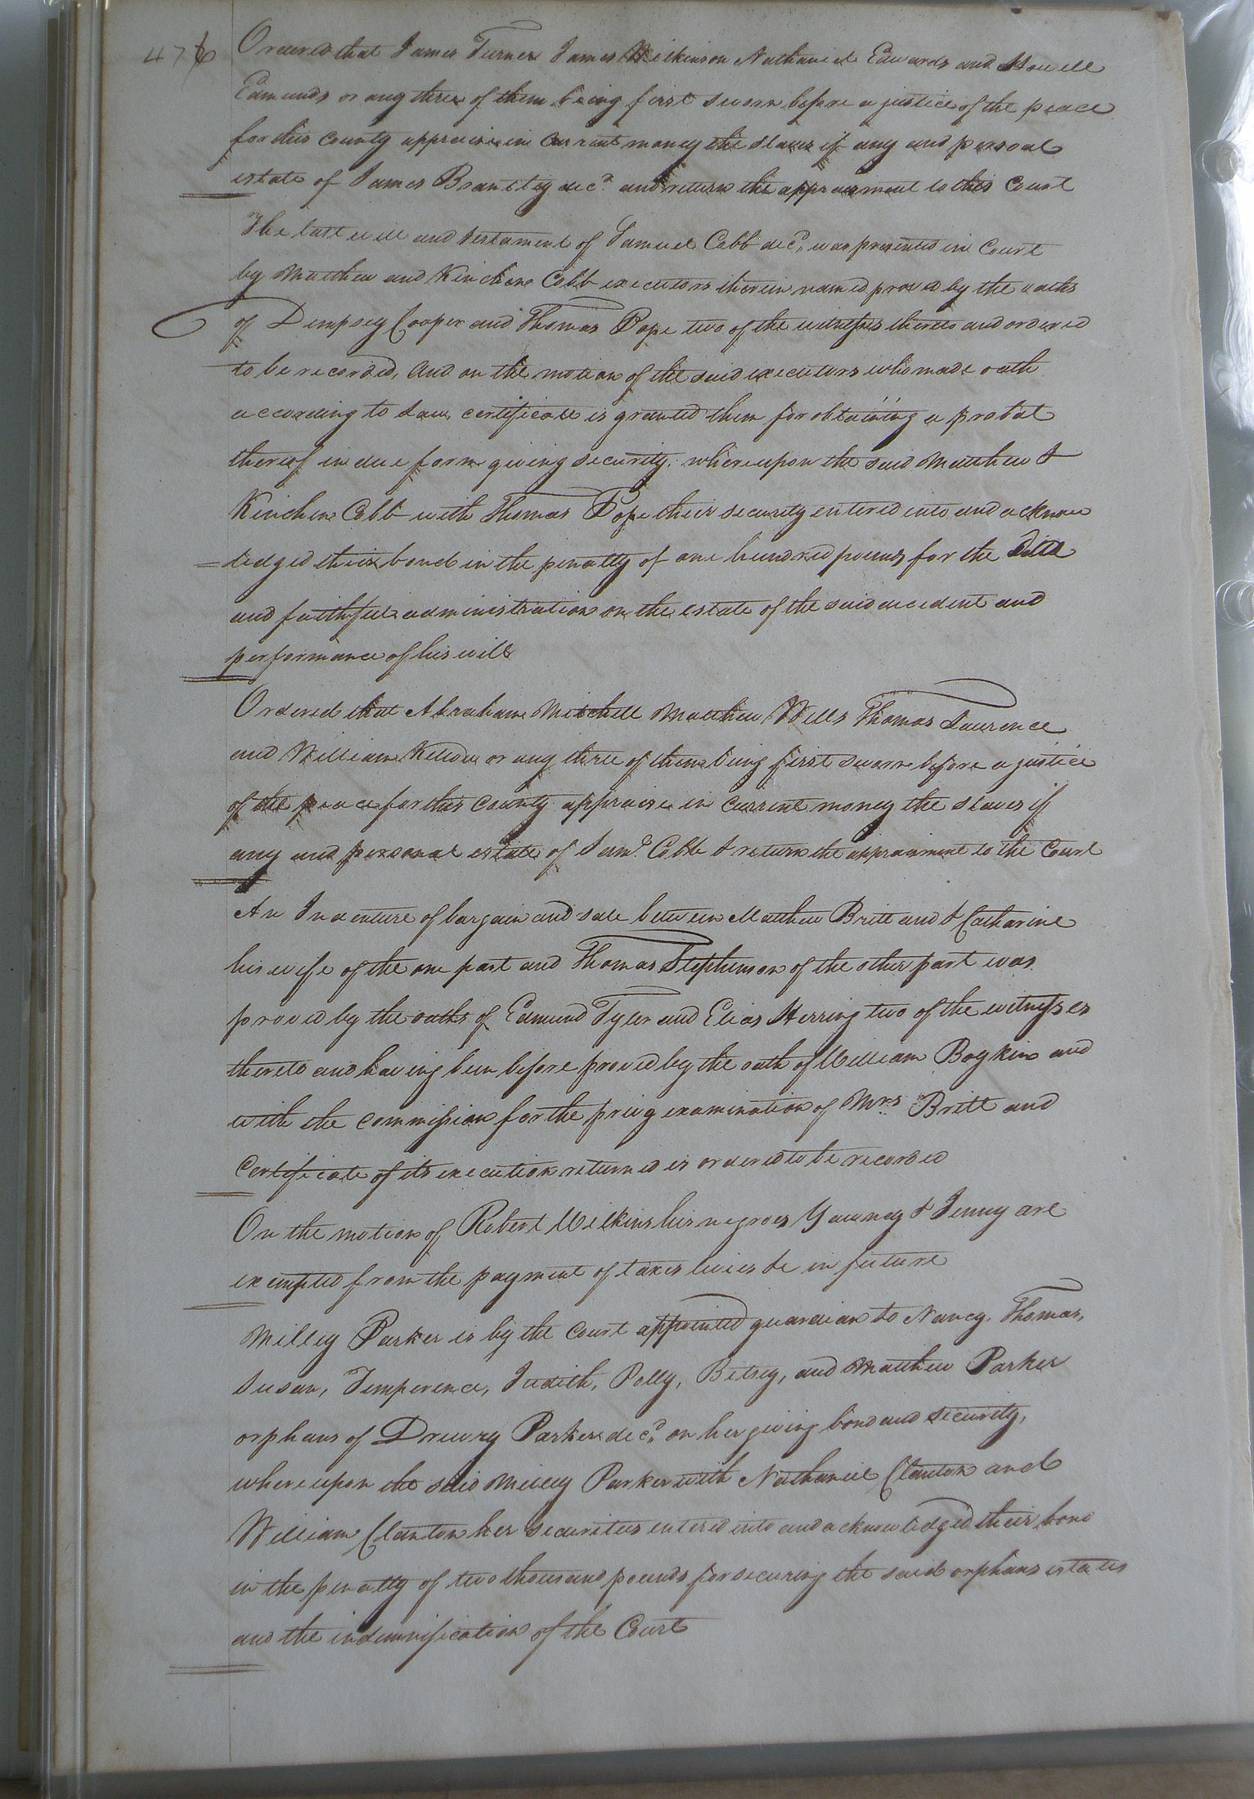 476
Ordered that James Turner James Wilkinson Nathaniel Edwards and Howell
Edmunds or any three of them being first sworn before a justice of the peace
for this County appraise in current money the slaves if any and personal
estate of James Brantley decd. and return the appraisment to this Court
The last will and testament of Samuel Cobb decd. was presented in Court
by Matthew and Kinchen Cobb executors therein named proved by the oaths
of Dempsey Cooper and Thomas Pope two of the witnesses thereto and ordered
to be recorded, And on the motion of the said executors who made oath
according to Law, certificate is granted them for obtaining a probat
thereof in due form giving security; whereupon the said Matthew &
Kinchen Cobb with Thomas Pope their security entered into and acknow
=ledged their bond in the penalty of one hundred pounds for the
and faithful administration on the estate of the said decedent and
performance of his will
Ordered that Abraham Mitchell Matthew Wells Thomas Laurence
and William or any three of them being first sworn before a justice
of the peace for this County appraise in current money the slaves if
any and personal estate of Saml. Cobb & return the appraisment to the Court
An Indenture of bargain and sale between Matthew Britt and & Catharine
his wife of the one part and Thomas Stephenson of the other part was
proved by the oaths of Edmund Tyler and Elias Herring two of the witnesses
thereto and having been before proved by the oath of William Boykin and
with the commission for the privy examination of Mrs. Britt and
Certificate of its execution returned is ordered to be recorded
On the motion of Robert Wilkins his negroes & Jenny are
exempted from the payment of taxes levies &c in future
Milley Parker is by the Court appointed guardian to Nancy, Thomas,
Susan, Temperence, Judith, Polly, Betsey, and Matthew Parker
orphans of Drewry Parker decd. on her giving bond and security,
whereupon the said Milley Parker with Nathaniel Clanton and
William Clanton her securities entered into and acknowledged their bond
in the penalty of two thousand pounds for securing the said orphans estates
and the indemnification of the Court